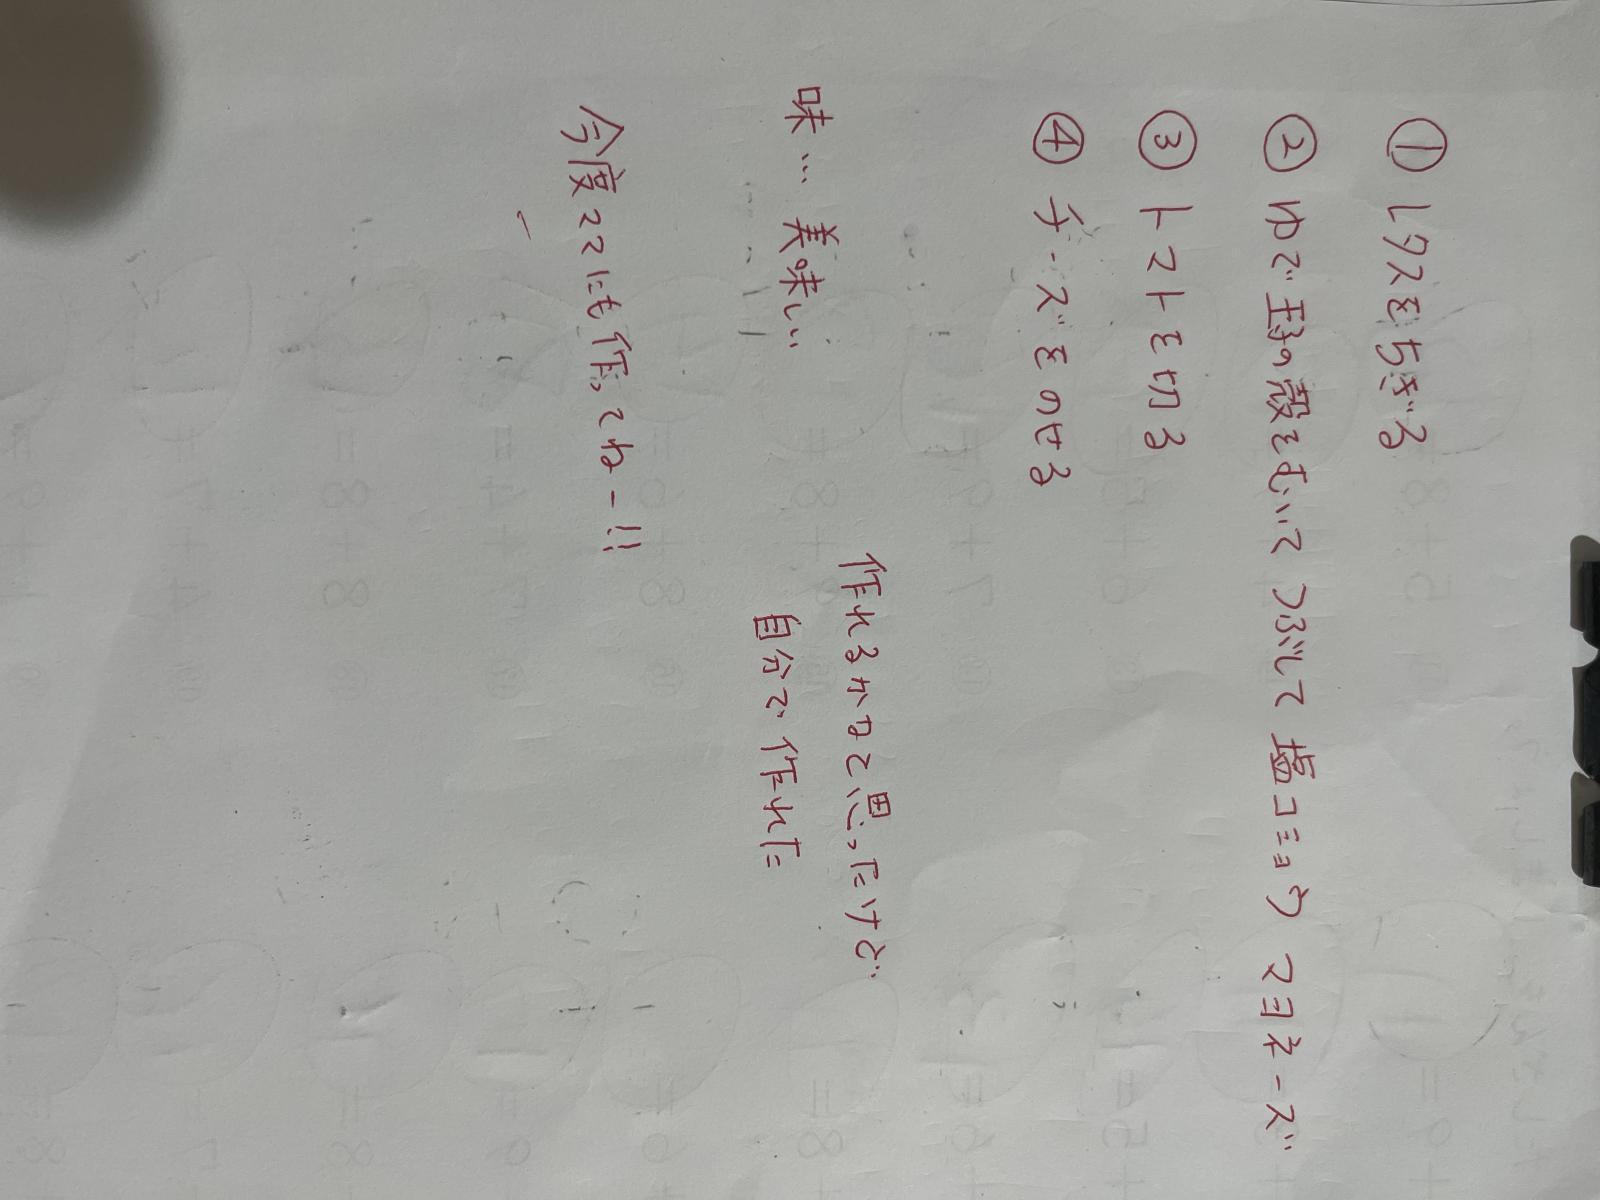 ① レタスをちぎる
② ゆで玉子の殻をむいて つぶして 塩コショウ マヨネーズ
③ トマトを切る
④ チーズをのせる
味… 美味しい
作れるかなと思ったけど
自分で作れた
今度ママにも作ってねー!!